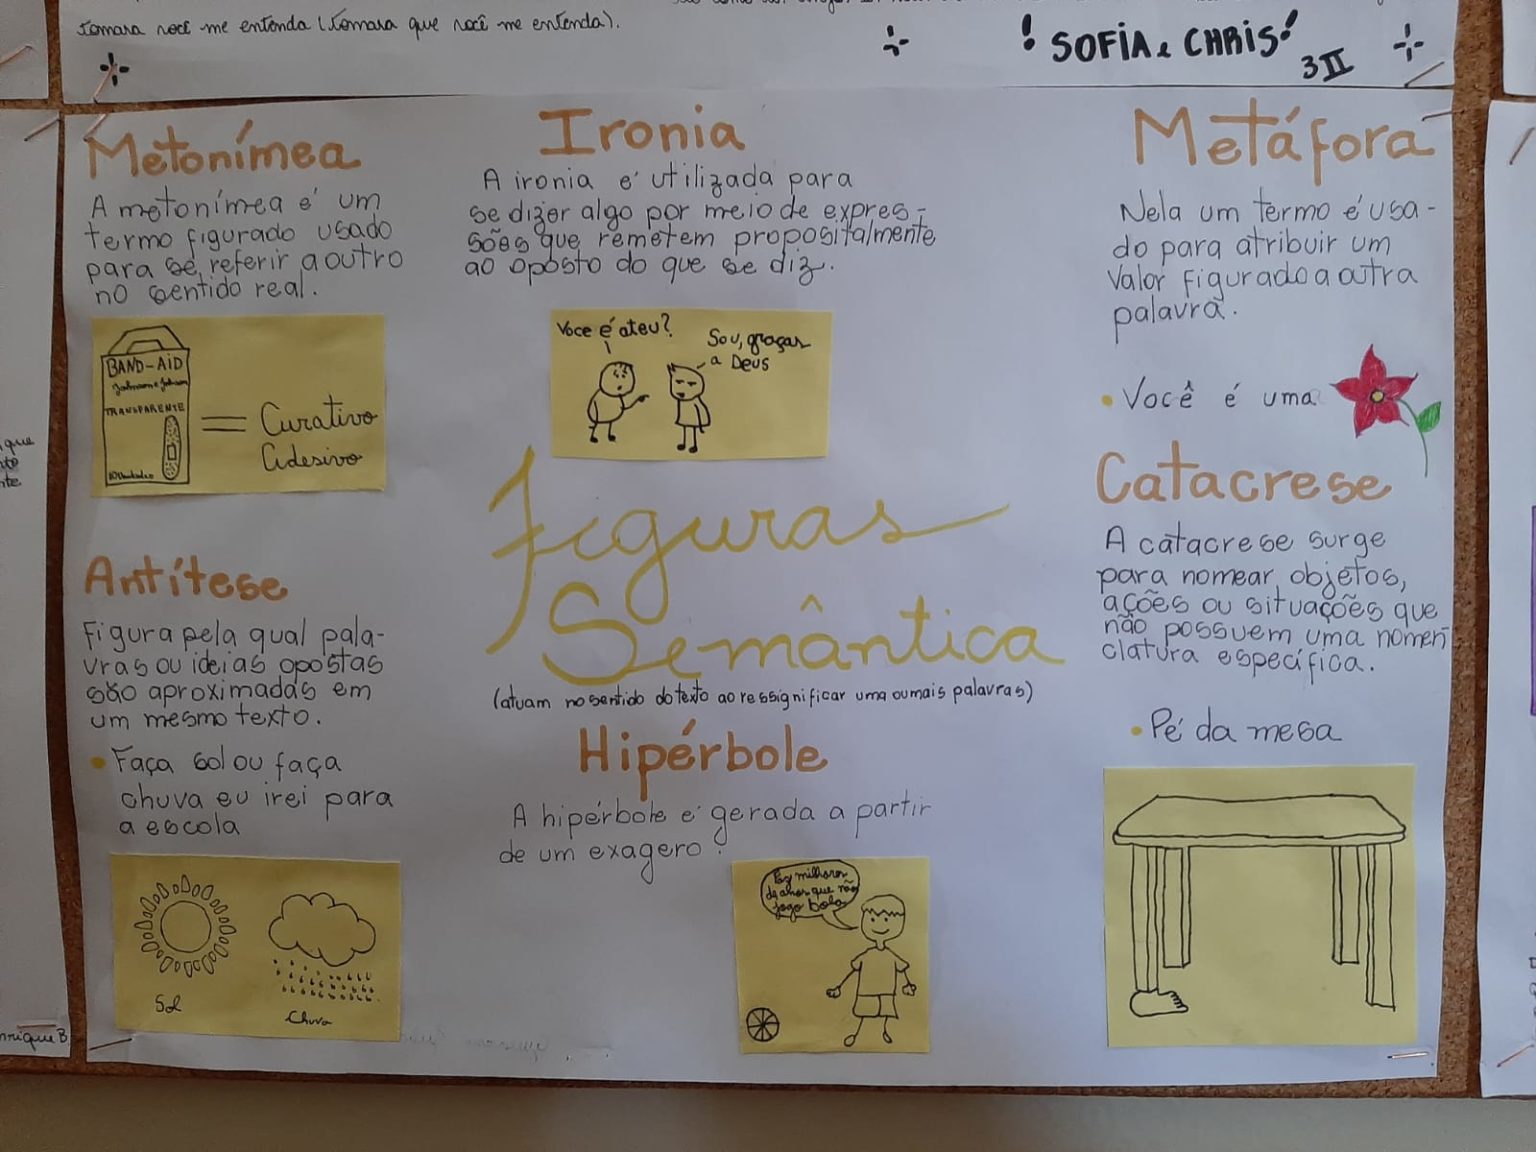 Tomara você me entenda (Tomara que você me entenda).
! SOFIA e CHRIS!
3II
Metonímea
A metonímea é um
termo figurado usado
para se referir a outro
no sentido real.
BAND-AID
Johnson e Johnson
TRANSPARENTE
= Curativo
Adesivo
Ironia
A ironia é utilizada para
se dizer algo por meio de expres-
sões que remetem propositalmente
ao oposto do que se diz.
Voce é ateu?
Sou, graças
a Deus
Metáfora
Nela um termo é usa-
do para atribuir um
valor figurado a outra
palavra.
• Você é uma
Figuras
Semântica
(atuam no sentido do texto ao ressignificar uma ou mais palavras)
Antítese
Figura pela qual pala-
vras ou ideias opostas
são aproximadas em
um mesmo texto.
• Faça sol ou faça
chuva eu irei para
a escola
Sol
Chuva
Hipérbole
A hipérbole é gerada a partir
de um exagero.
Faz milhares
de anos que não
jogo bola
Catacrese
A catacrese surge
para nomear objetos,
ações ou situações que
não possuem uma nomen
clatura específica.
• Pé da mesa
que
nte
nrique B